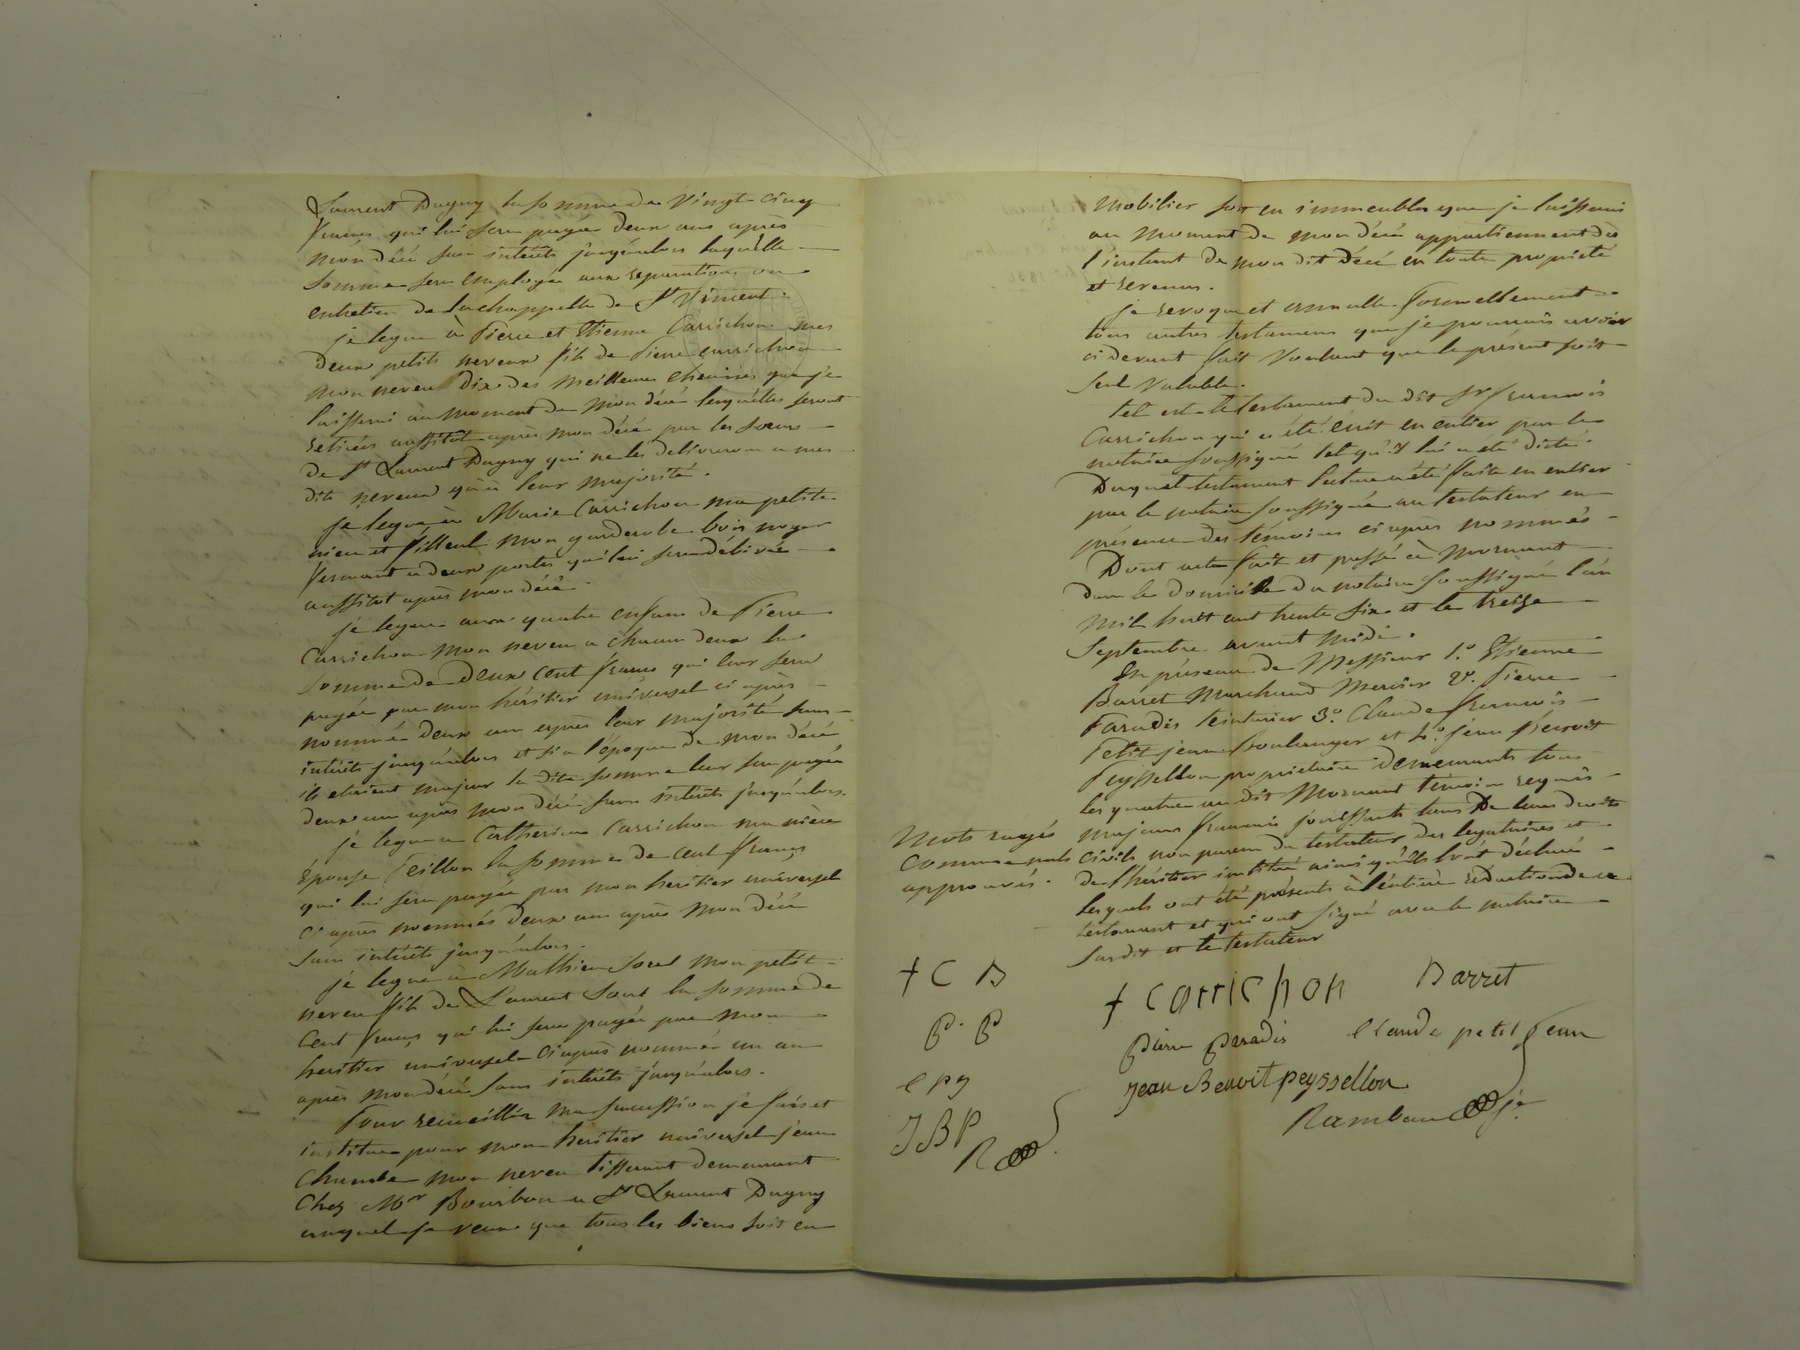 Laurent Dagny la somme de Vingt cinq
francs qui lui sera payée deux ans après
mon décé sans intérêts jusqu'alors laquelle
somme sera employée aux reparations ou
entretien de la chappelle de St Vincent.
je legue à Pierre et Etienne Carrichon mes
Deux petits neveux fils de Pierre carrichon
mon neveu dix des meilleures chemises que je
laisserai au moment de mon décé lesquelles seront
retirées aussitôt après mon décé par les soeurs
de St Laurent Dagny qui ne les delivreron a mes
dits neveux qu'à leur majorité.
je legue à Marie Carrichon ma petite
niece et filleul mon garderobe bois noyer
fermant à deux portes qui lui sera délivrée
aussitot après mon décé.
je legue aux quatre enfans de Pierre
Carrichon mon neveu a chacun deux la
somme de deux cent francs qui leur sera
payée par mon héritier universel ci après
nommé deux ans après leur majorité sans
intérêts jusqu'alors et si a l'époque de mon décé
ils etaient majeur la dite somme leur sera payée
deux ans après mon décé sans intérêts jusqu'alors.
je legue a Catherine Carrichon ma nièce
épouse Teillon la somme de cent francs
qui lui sera payée par mon heritier universel
ci après nommés deux ans après mon décé
sans intérêts jusqu'alors.
je legue a Mathieu Sout mon petit
neveu fils de Laurent Sout la somme de
cent francs qui lui sera payée par mon
heritier universel ci après nommé un an
après mon décé sans intérêts jusqu'alors.
Pour recueillir ma succession je fais et
institue pour mon heritier universel jean
Chambe mon neveu tisserant demeurant
Chez Mr Bourbon a St Laurent Dagny
auquel je veux que tous les biens soit en
Mobilier soit en immeubles que je laisserai
au moment de mon décé appartiennent dès
l'instant de mon dit décé en toute propriété
et revenus.
je revoque et annulle formellement
tous autres testamens que je pourrais avoir
ci devant fait Voulant que le présent soit
seul valable.
tel est le testament du dit Sr francois
Carrichon qui a été écrit en entier par le
notaire soussigné tel qu'il lui a été dicté.
Duquel testament lecture a été faite en entier
par le notaire soussigné au testateur en
présence des témoins ci après nommés
Dont acte fait et passé à Mornant
dans le domicile du notaire soussigné l'an
mil huit cent trente six et le treize
Septembre avant midi.
En présence de Messieur 1.o Etienne
Barret Marchand Mercier 2.o Pierre
Paradis teinturier 3.o Claude francois
Petit jean boulanger et 4.o jean Benoit
Peyssellon proprietaire demeurants tous
les quatre au dit Mornant témoins requis
majeurs francais jouissants tous De leurs droits
civils non parens du testateur des legataires et
de l'héritier institué ainsi qu'ils l'ont déclaré
lesquels ont été présents à l'entière rédaction de ce
testament et qui ont signé avec le notaire
susdit et le testateur
Mots rayés
Comme nuls
approuvés.
+ C B
P. P
C p J
J B P
R
+ Carrichon Barret
pierre paradis Claude petit jean
Jean Benoit peyssellon
Rambau je